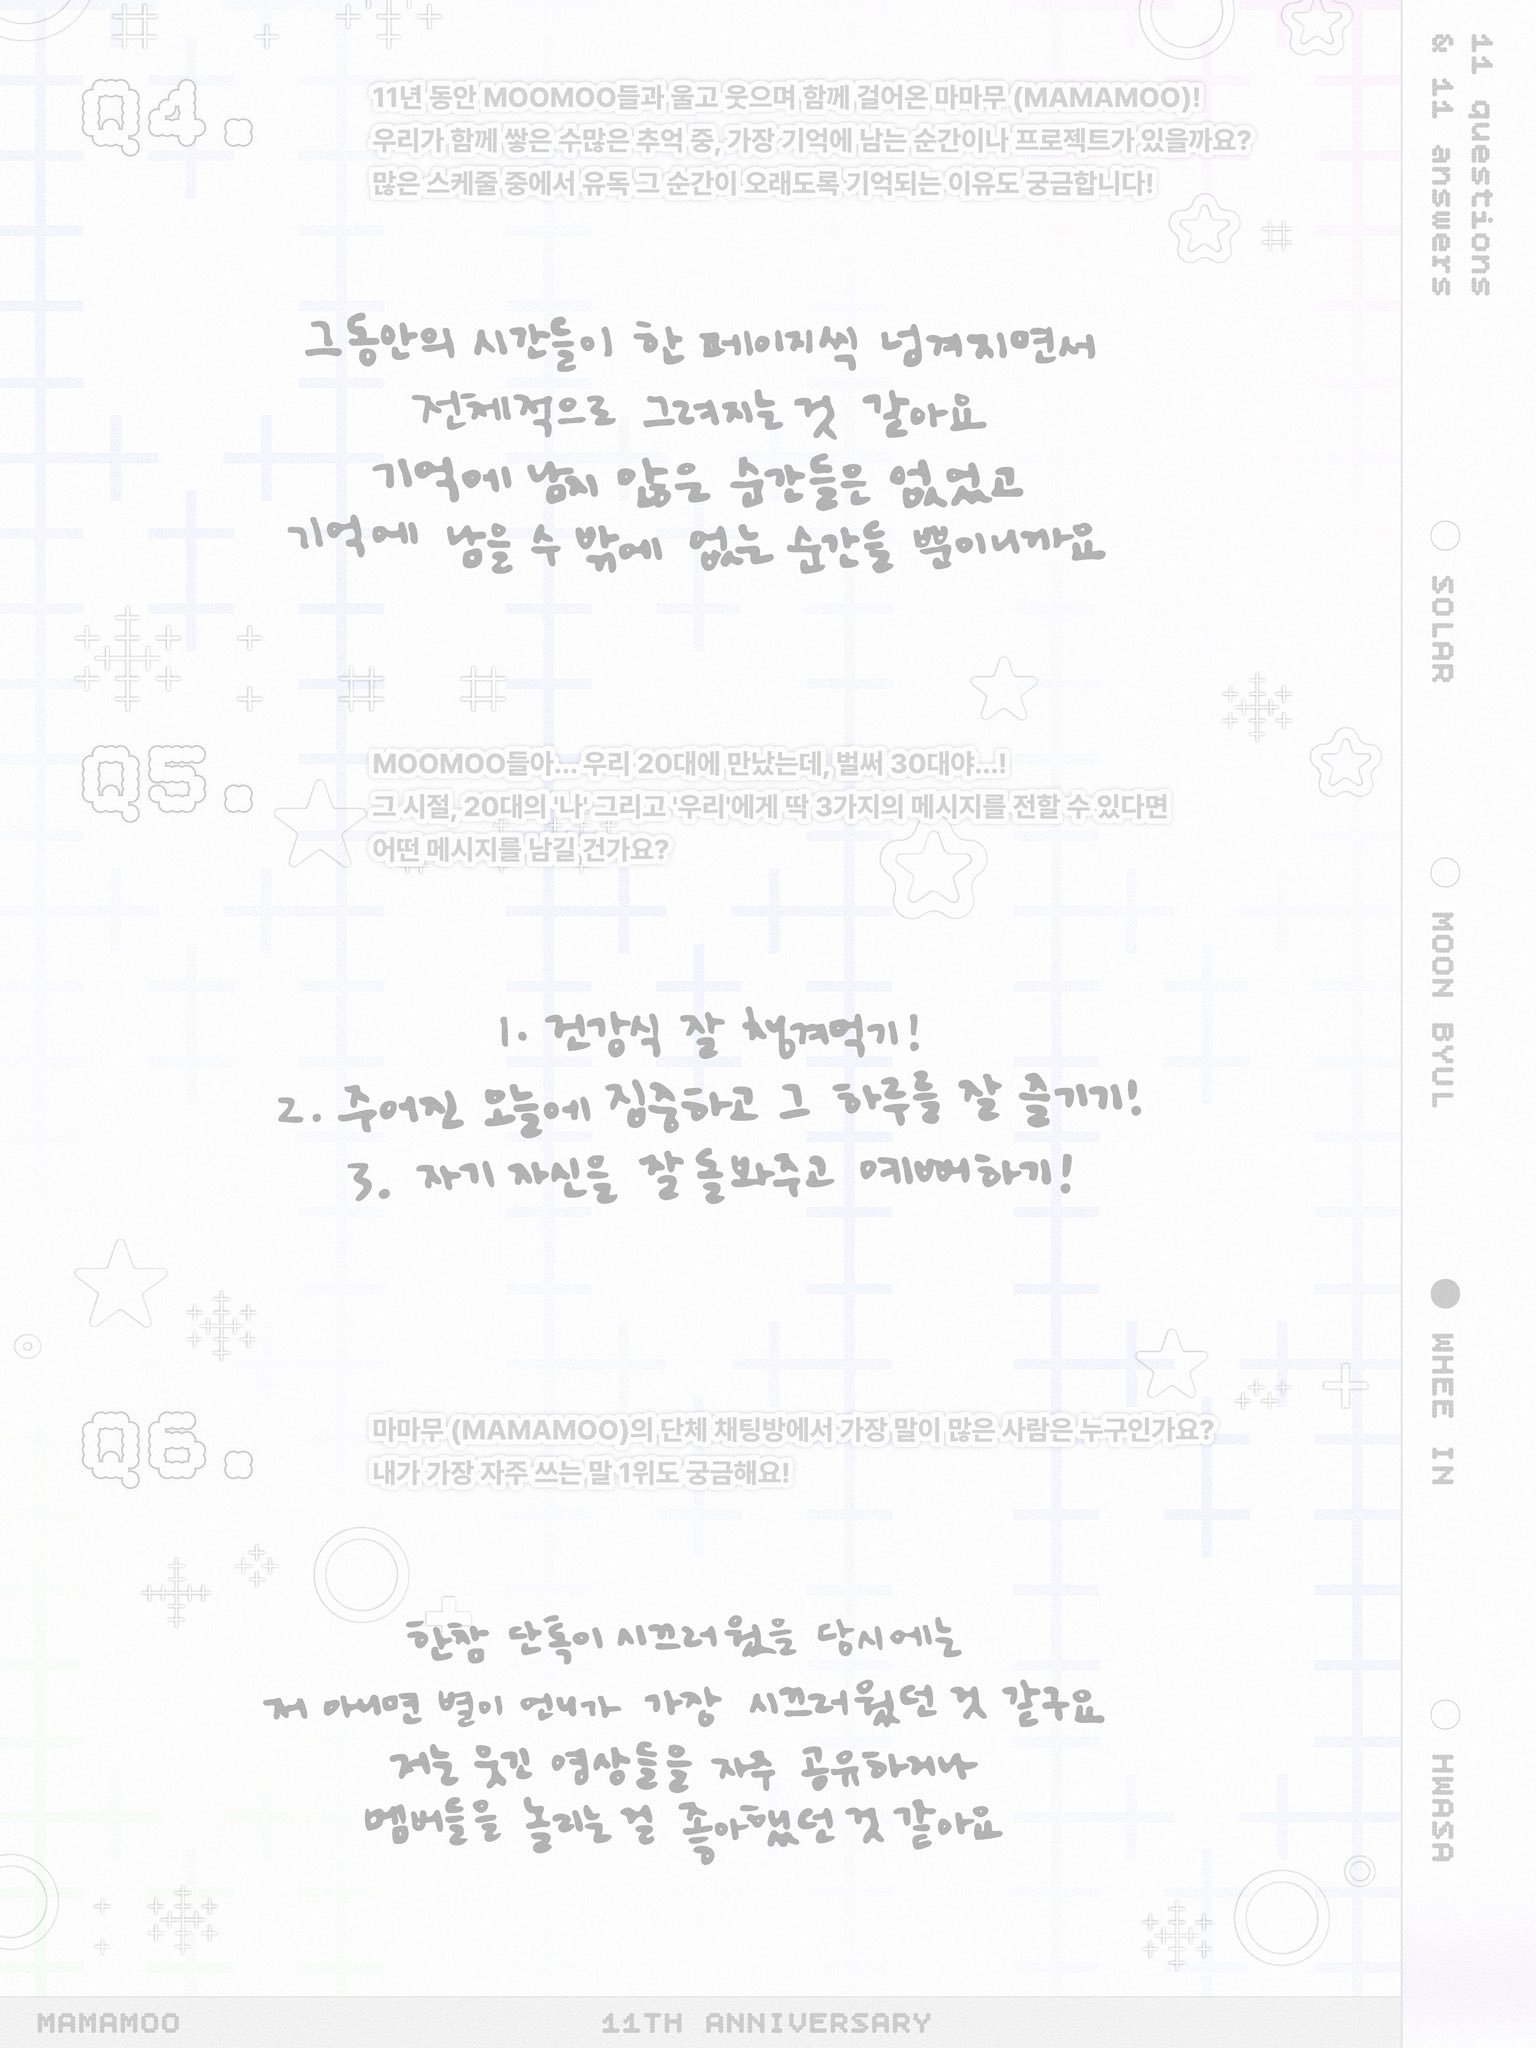 11 questions
& 11 answers
Q4.
11년 동안 MOOMOO들과 울고 웃으며 함께 걸어온 마마무 (MAMAMOO)!
우리가 함께 쌓은 수많은 추억 중, 가장 기억에 남는 순간이나 프로젝트가 있을까요?
많은 스케줄 중에서 유독 그 순간이 오래도록 기억되는 이유도 궁금합니다!
그동안의 시간들이 한 페이지씩 넘겨지면서
전체적으로 그려지는 것 같아요
기억에 남지 않은 순간들은 없었고
기억에 남을 수 밖에 없는 순간들 뿐이니까요
Q5.
MOOMOO들아... 우리 20대에 만났는데, 벌써 30대야...!
그 시절, 20대의 '나' 그리고 '우리'에게 딱 3가지의 메시지를 전할 수 있다면
어떤 메시지를 남길 건가요?
1. 건강식 잘 챙겨먹기!
2. 주어진 오늘에 집중하고 그 하루를 잘 즐기기!
3. 자기 자신을 잘 돌봐주고 예뻐하기!
Q6.
마마무 (MAMAMOO)의 단체 채팅방에서 가장 말이 많은 사람은 누구인가요?
내가 가장 자주 쓰는 말 1위도 궁금해요!
한참 단톡이 시끄러웠을 당시에는
저 아니면 별이 언니가 가장 시끄러웠던 것 같구요
저는 웃긴 영상들을 자주 공유하거나
멤버들을 놀리는 걸 좋아했던 것 같아요
SOLAR
MOON BYUL
WHEE IN
HWASA
MAMAMOO
11TH ANNIVERSARY